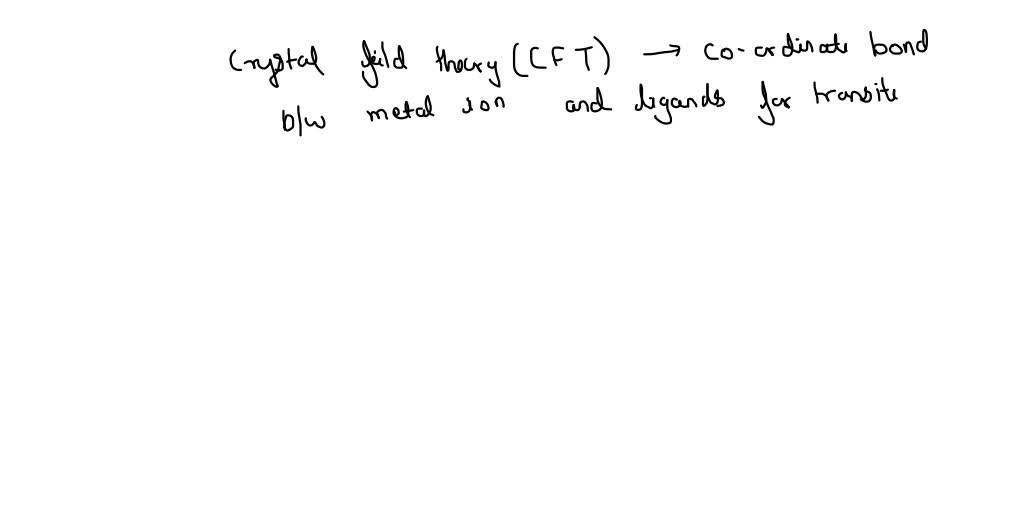 Crystal feild theory (CFT) → co-ordinate bond
b/w metal ion and ligands for transite